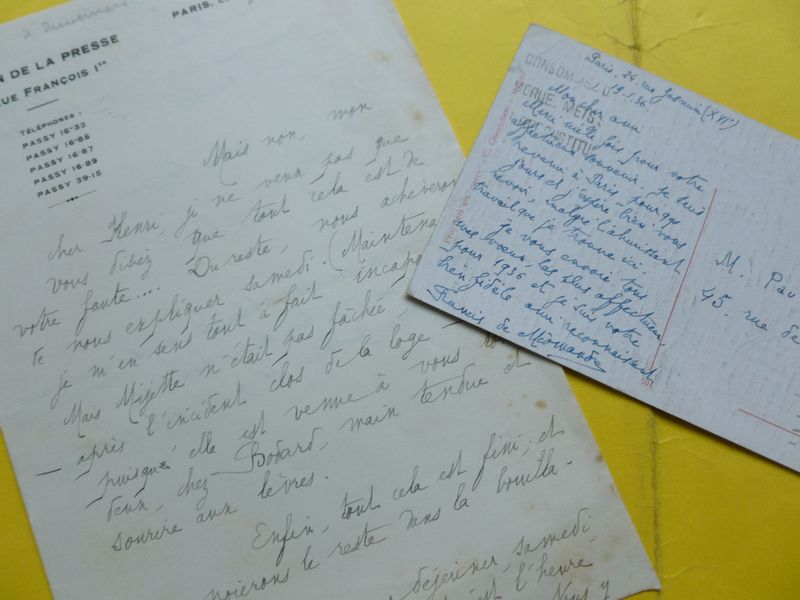 PARIS, L
N DE LA PRESSE
UE FRANÇOIS Ier
TÉLÉPHONES :
PASSY 16-32
PASSY 16-85
PASSY 16-87
PASSY 16-89
PASSY 39-15
Mais non, mon
cher Henri, je ne veux pas que
vous disiez que tout cela est de
votre faute.... Du reste, nous achèveron
de nous expliquer samedi. (Maintena
je m'en sens tout à fait incapa
Mais Mijette n'était pas fâchée,
— après l'incident clos de la loge —
puisqu'elle est venue à vous
deux, chez Bodard, main tendue et
sourire aux lèvres.
Enfin, tout cela est fini, et
noierons le reste dans la bouilla-
déjeuner, samedi,
l'heure
y
Paris. 24, rue (XVIe)
9.1.36.
CONSOMMEZ D
MORUE METS
Mon cher ami
Merci mille fois pour votre
affectueux souvenir. Je suis
revenu à Paris pour qqs
jours et j'espère bien vous
revoir, malgré l'ahurissant
travail que je trouve ici.
Je vous envoie tous
mes voeux les plus affectueux
pour 1936 et je suis votre
bien fidèle ami reconnaissant
Francis de Miomandre
M. Pau
45, rue de